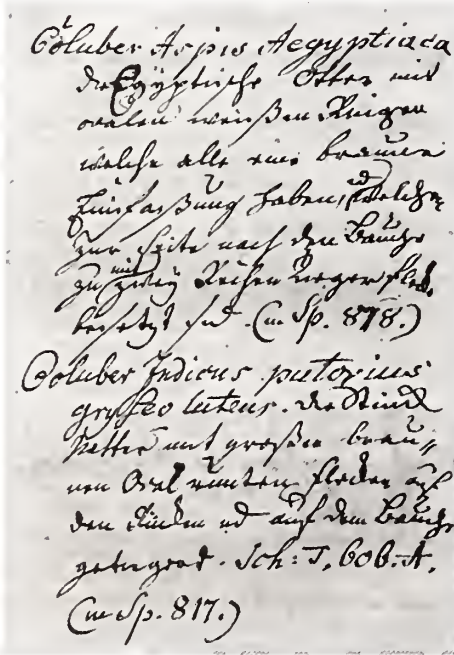 Coluber Aspis Aegyptiaca
die Egÿptische Otter mit
ovalen weißen Ringen
welche alle eine braune
Einfaßung haben, welche
zur Seite nach dem Bauche
zu mit zweÿ Reihen
besetzt sind. (in Sp. 878.)
Coluber Indicus putorius
gryseo luteus. die Stinck
Natter mit großen brau=
nen Oval runten flecken auf
den Rücken ud auf dem Bauche
getiegert. Sch: T. 606. A.
(in Sp. 817.)